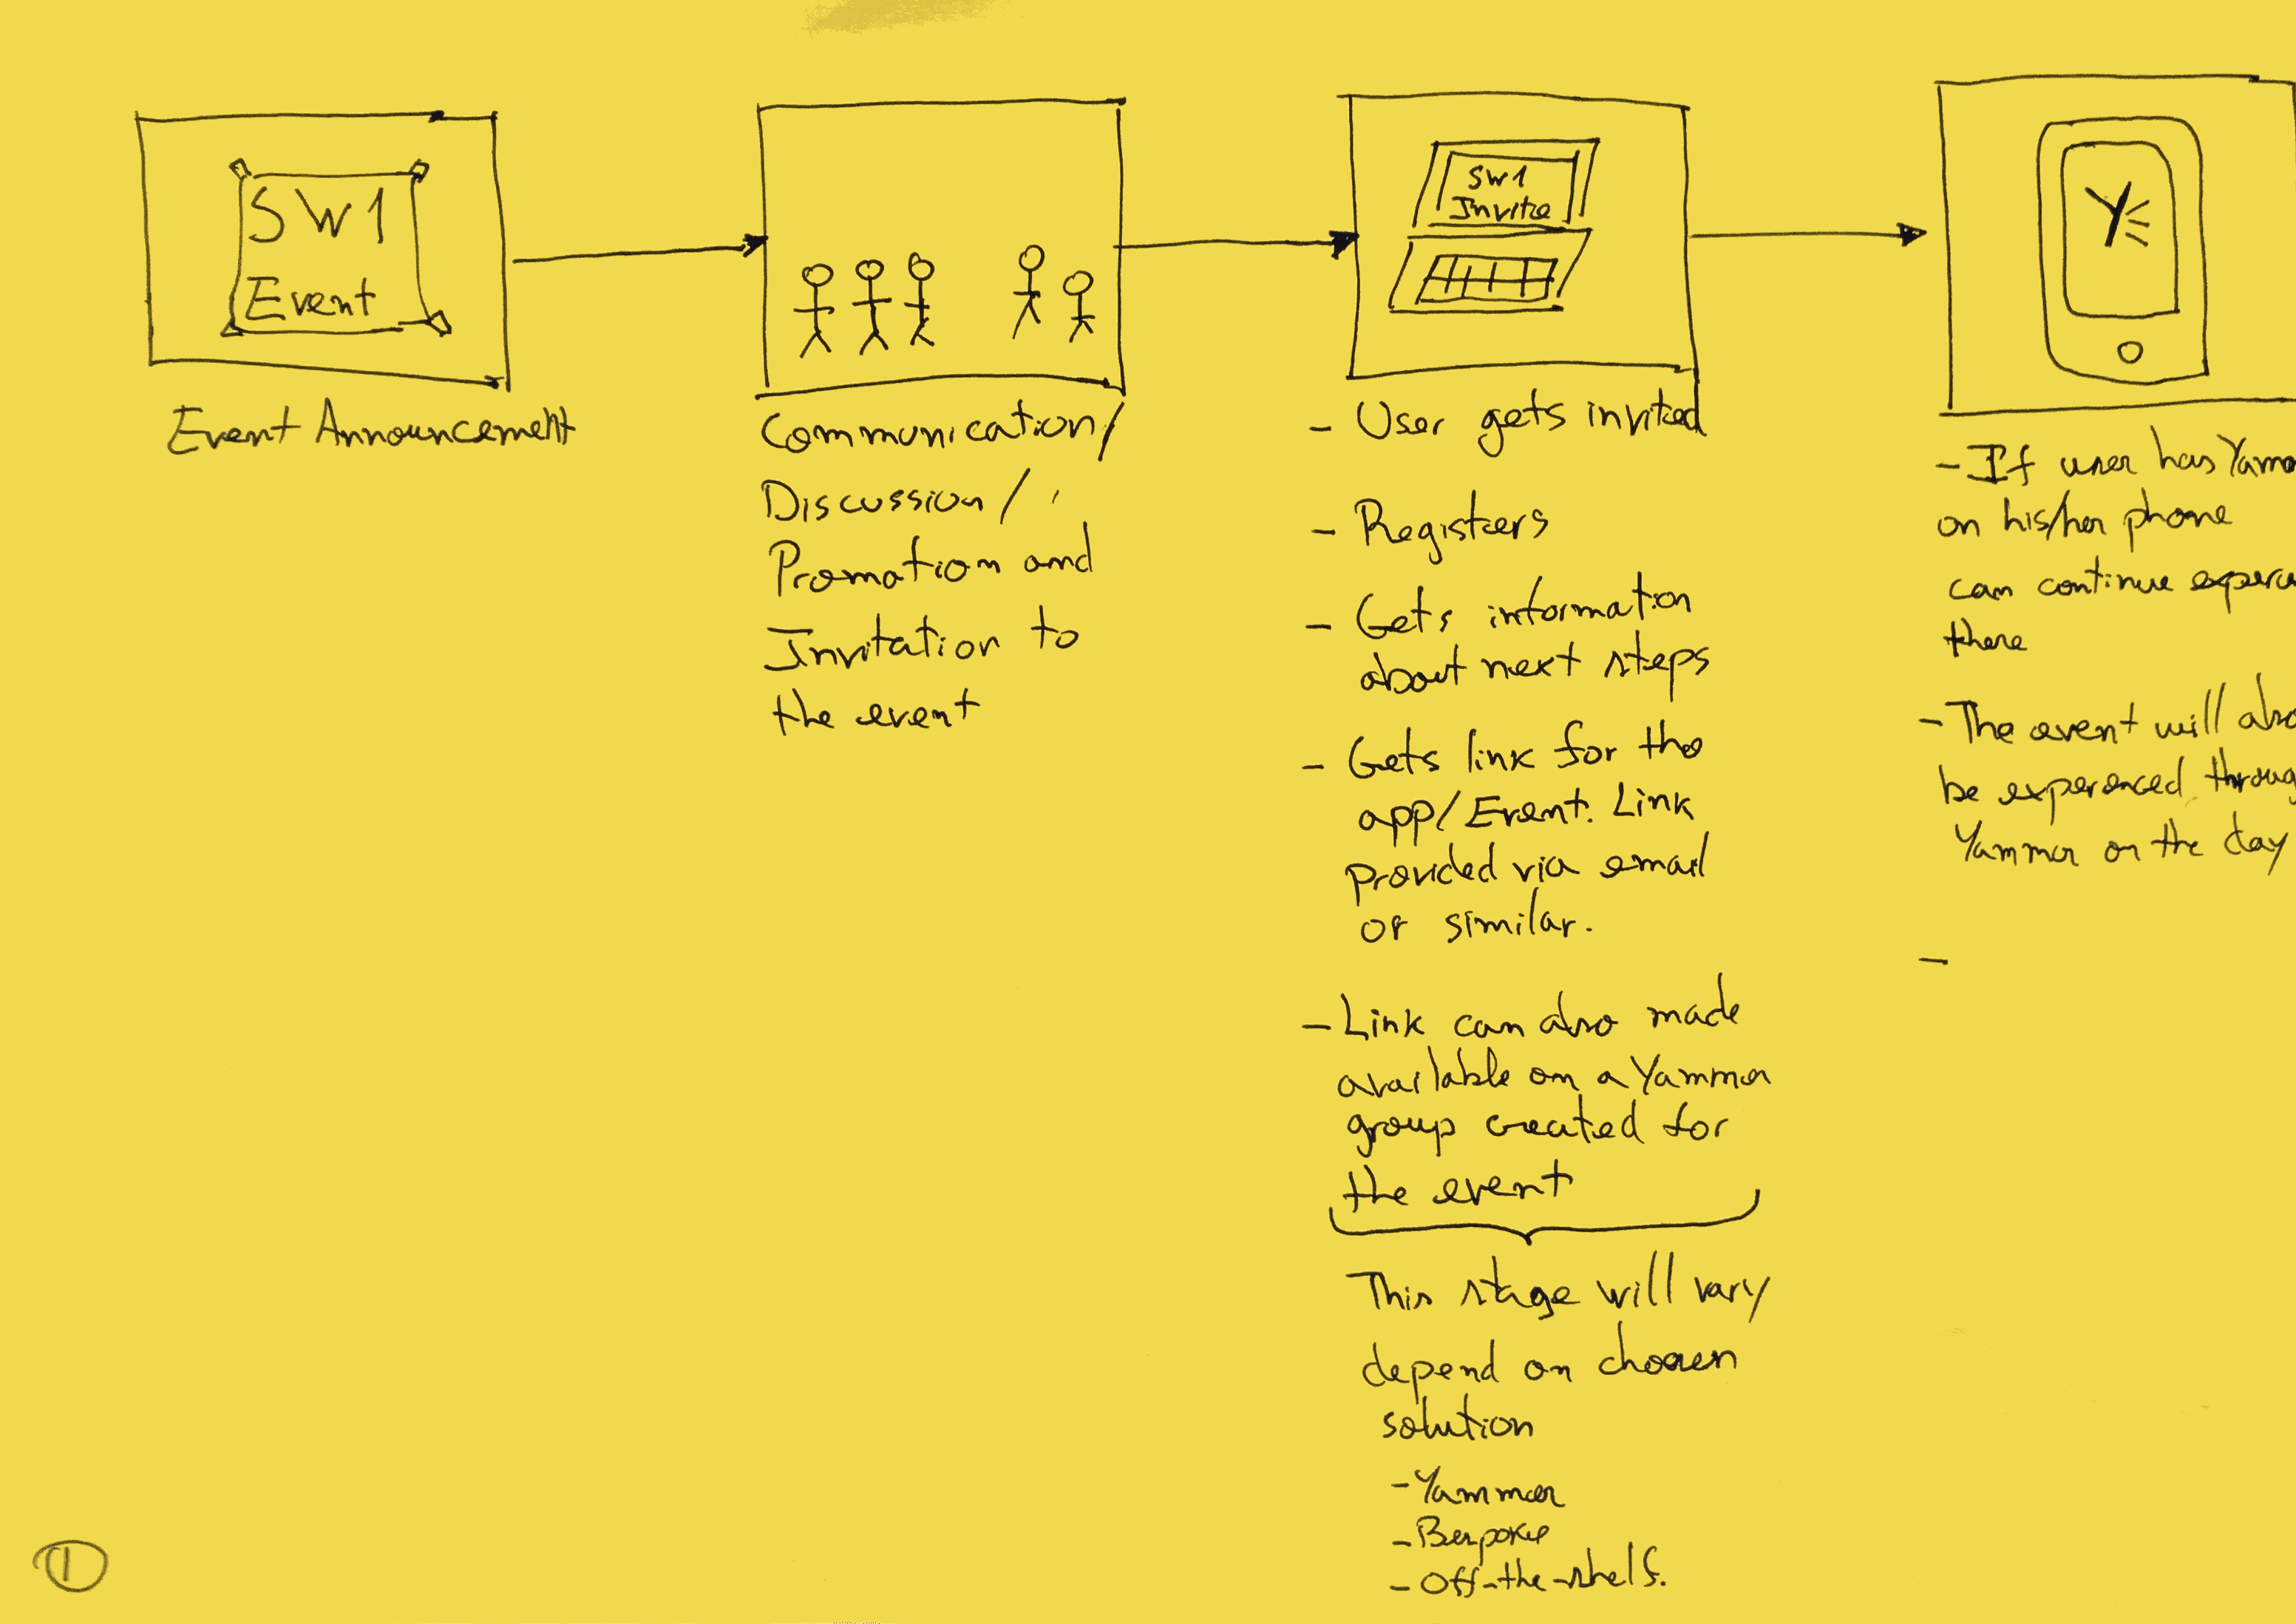 SW1
Event
Event Announcement
Communication/
Discussion/
Promotion and
Invitation to
the event
SW1
Invite
- User gets invited
- Registers
- Gets information
about next steps
- Gets link for the
app/Event. Link
provided via email
or similar.
- Link can also made
available on a Yammer
group created for
the event
This stage will vary
depend on chosen
solution
- Yammer
- Bespoke
- Off-the-shelf.
Y
- If user has
on his/her phone
can continue
there
- The event will also
be experienced
Yammer on the day
-
1